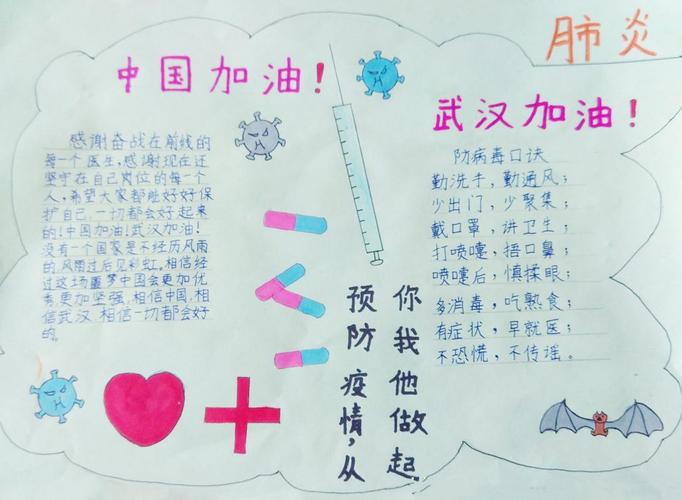 肺炎
中国加油！
武汉加油！
感谢奋战在前线的
每一个医生，感谢现在还
坚守在自己岗位的每一个
人，希望大家都能好好保
护自己，一切都会好起来
的！中国加油！武汉加油！
没有一个国家是不经历风雨
的，风雨过后见彩虹。相信经
过这场噩梦中国会更加优
秀更加坚强，相信中国，相
信武汉，相信一切都会好
的。
防病毒口诀
勤洗手，勤通风；
少出门，少聚集；
戴口罩，讲卫生；
打喷嚏，捂口鼻；
喷嚏后，慎揉眼；
多消毒，吃熟食；
有症状，早就医；
不恐慌，不传谣。
预防疫情，从
你我他做起。